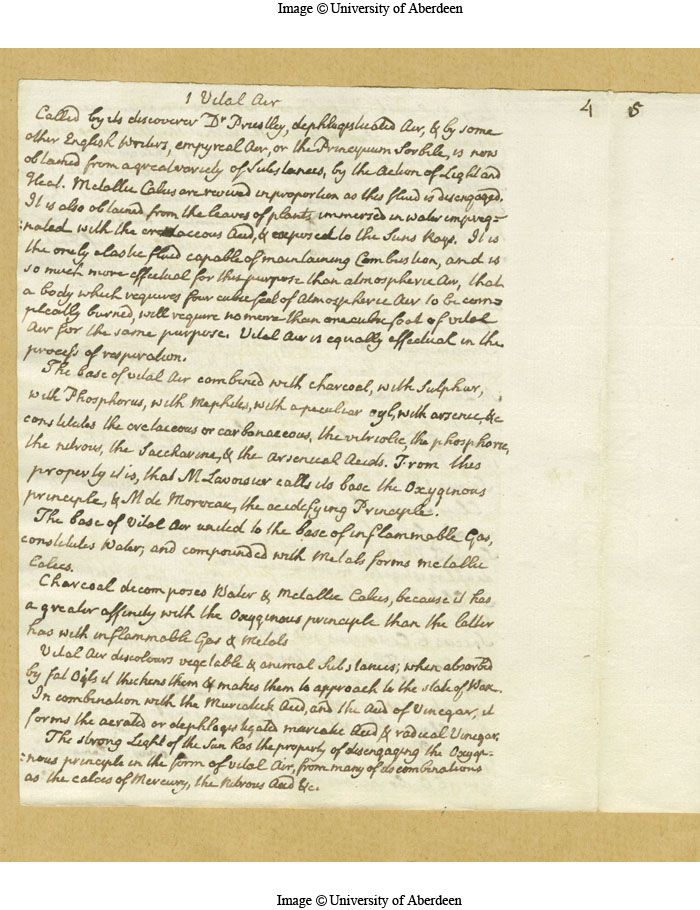 Image © University of Aberdeen
4 5
1 Vital Air
Called by its discoverer Dr Priestley, dephlogisticated Air, & by some
other English Writers, empyreal Air, or the Principium Sorbile, is now
obtained from a great variety of Substances, by the Action of Light and
Heat. Metallic Calces are revived in proportion as this fluid is disengaged.
It is also obtained from the leaves of plants immersed in water impreg=
:nated with the cretaceous Acid, & exposed to the Suns Rays. It is
the only elastic fluid capable of maintaining Combustion, and is
so much more effectual for this purpose than atmospheric Air, that
a body which requires four cubic feet of Atmospheric Air to be com=
pleatly burned, will require no more than one cubic foot of vital
Air for the same purpose. Vital Air is equally effectual in the
process of respiration.
The base of vital Air combined with charcoal, with Sulphur,
with Phosphorus, with Mephites, with a peculiar oyl, with arsenic, &c
constitutes the cretaceous or carbonaceous, the vitriolic, the phosphoric,
the nitrous, the Saccharine, & the Arsenical Acids. From this
property it is, that M Lavoisier calls its base the Oxyginous
principle, & M de Morveau, the acidifying Principle.
The base of Vital Air united to the base of inflammable Gas,
constitutes Water, and compounded with Metals forms metallic
Calces.
Charcoal decomposes Water & Metallic Calces, because it has
a greater affinity with the Oxyginous principle than the latter
has with inflammable Gas & Metals
Vital Air discolours vegetable & animal Substances; when absorbed
by fat Oyls it thickens them & makes them to approach to the state of Wax.
In combination with the Muriatick Acid, and the Acid of Vinegar, it
forms the aerated or dephlogisticated muriatic Acid & radical Vinegar.
The strong Light of the Sun has the property of disengaging the Oxygi=
:nous principle in the form of vital Air, from many of its combinations
as the calces of Mercury, the Nitrous Acid &c.
Image © University of Aberdeen